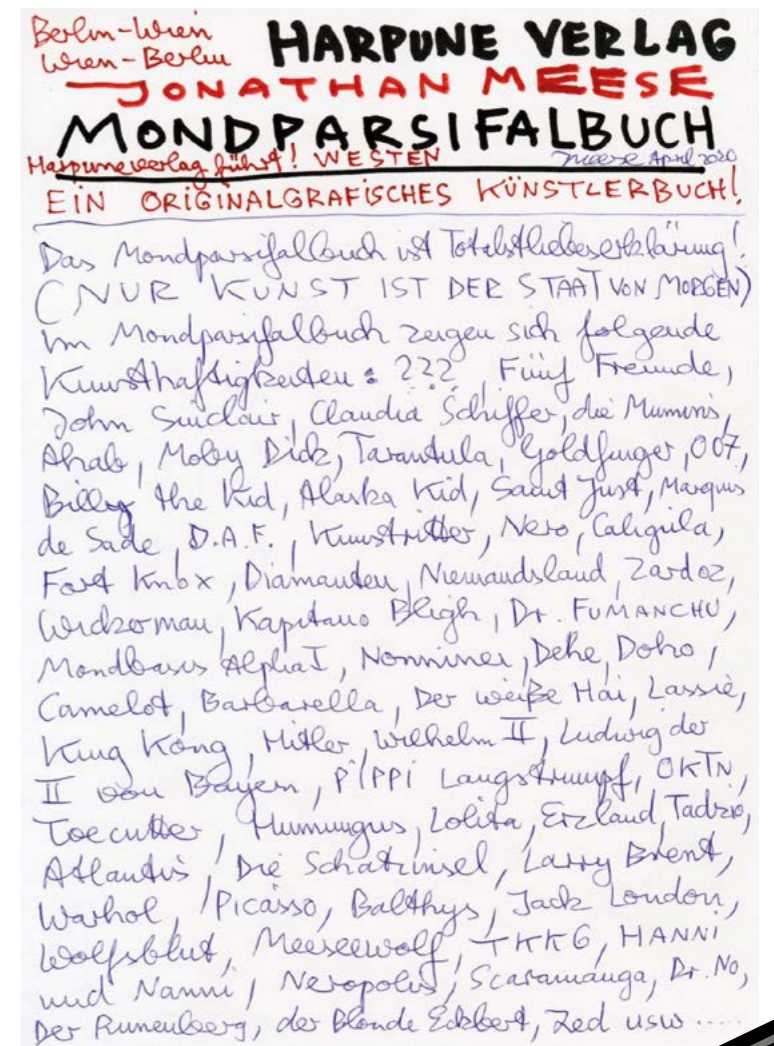 Berlin-Wien
Wien-Berlin
HARPUNE VERLAG
JONATHAN MEESE
MONDPARSIFALBUCH
Harpuneverlag führt! WESTEN
Meese April 2020
EIN ORIGINALGRAFISCHES KÜNSTLERBUCH!
Das Mondparsifalbuch ist Totalstliebeserklärung!
(NUR KUNST IST DER STAAT VON MORGEN)
Im Mondparsifalbuch zeigen sich folgende
Kunsthaftigkeiten: ???, Fünf Freunde,
John Sinclair, Claudia Schiffer, die Mumins,
Ahab, Moby Dick, Tarantula, Goldfinger, 007,
Billy the Kid, Alaska Kid, Saint Just, Marquis
de Sade, D.A.F., Kunstritter, Nero, Caligula,
Fort Knox, Diamanten, Niemandsland, Zardoz,
Wickerman, Kapitano Bligh, Dr. FUMANCHU,
Mondbasis Alpha I, Dehe, Doho,
Camelot, Barbarella, Der weiße Hai, Lassie,
King Kong, Hitler, Wilhelm II, Ludwig der
II von Bayern, PIPPI Langstrumpf, OKTN,
Toecutter, Humungus, Lolita, Erzland, Tadzio,
Atlantis, Die Schatzinsel, Larry Brent,
Warhol, Picasso, Balthys, Jack London,
Wolfsblut, Meesewolf, TKKG, HANNI
und Nanni, Neropolis, Scaramanga, Dr. No,
Der Runenberg, der Blonde Eckbert, Zed usw.....